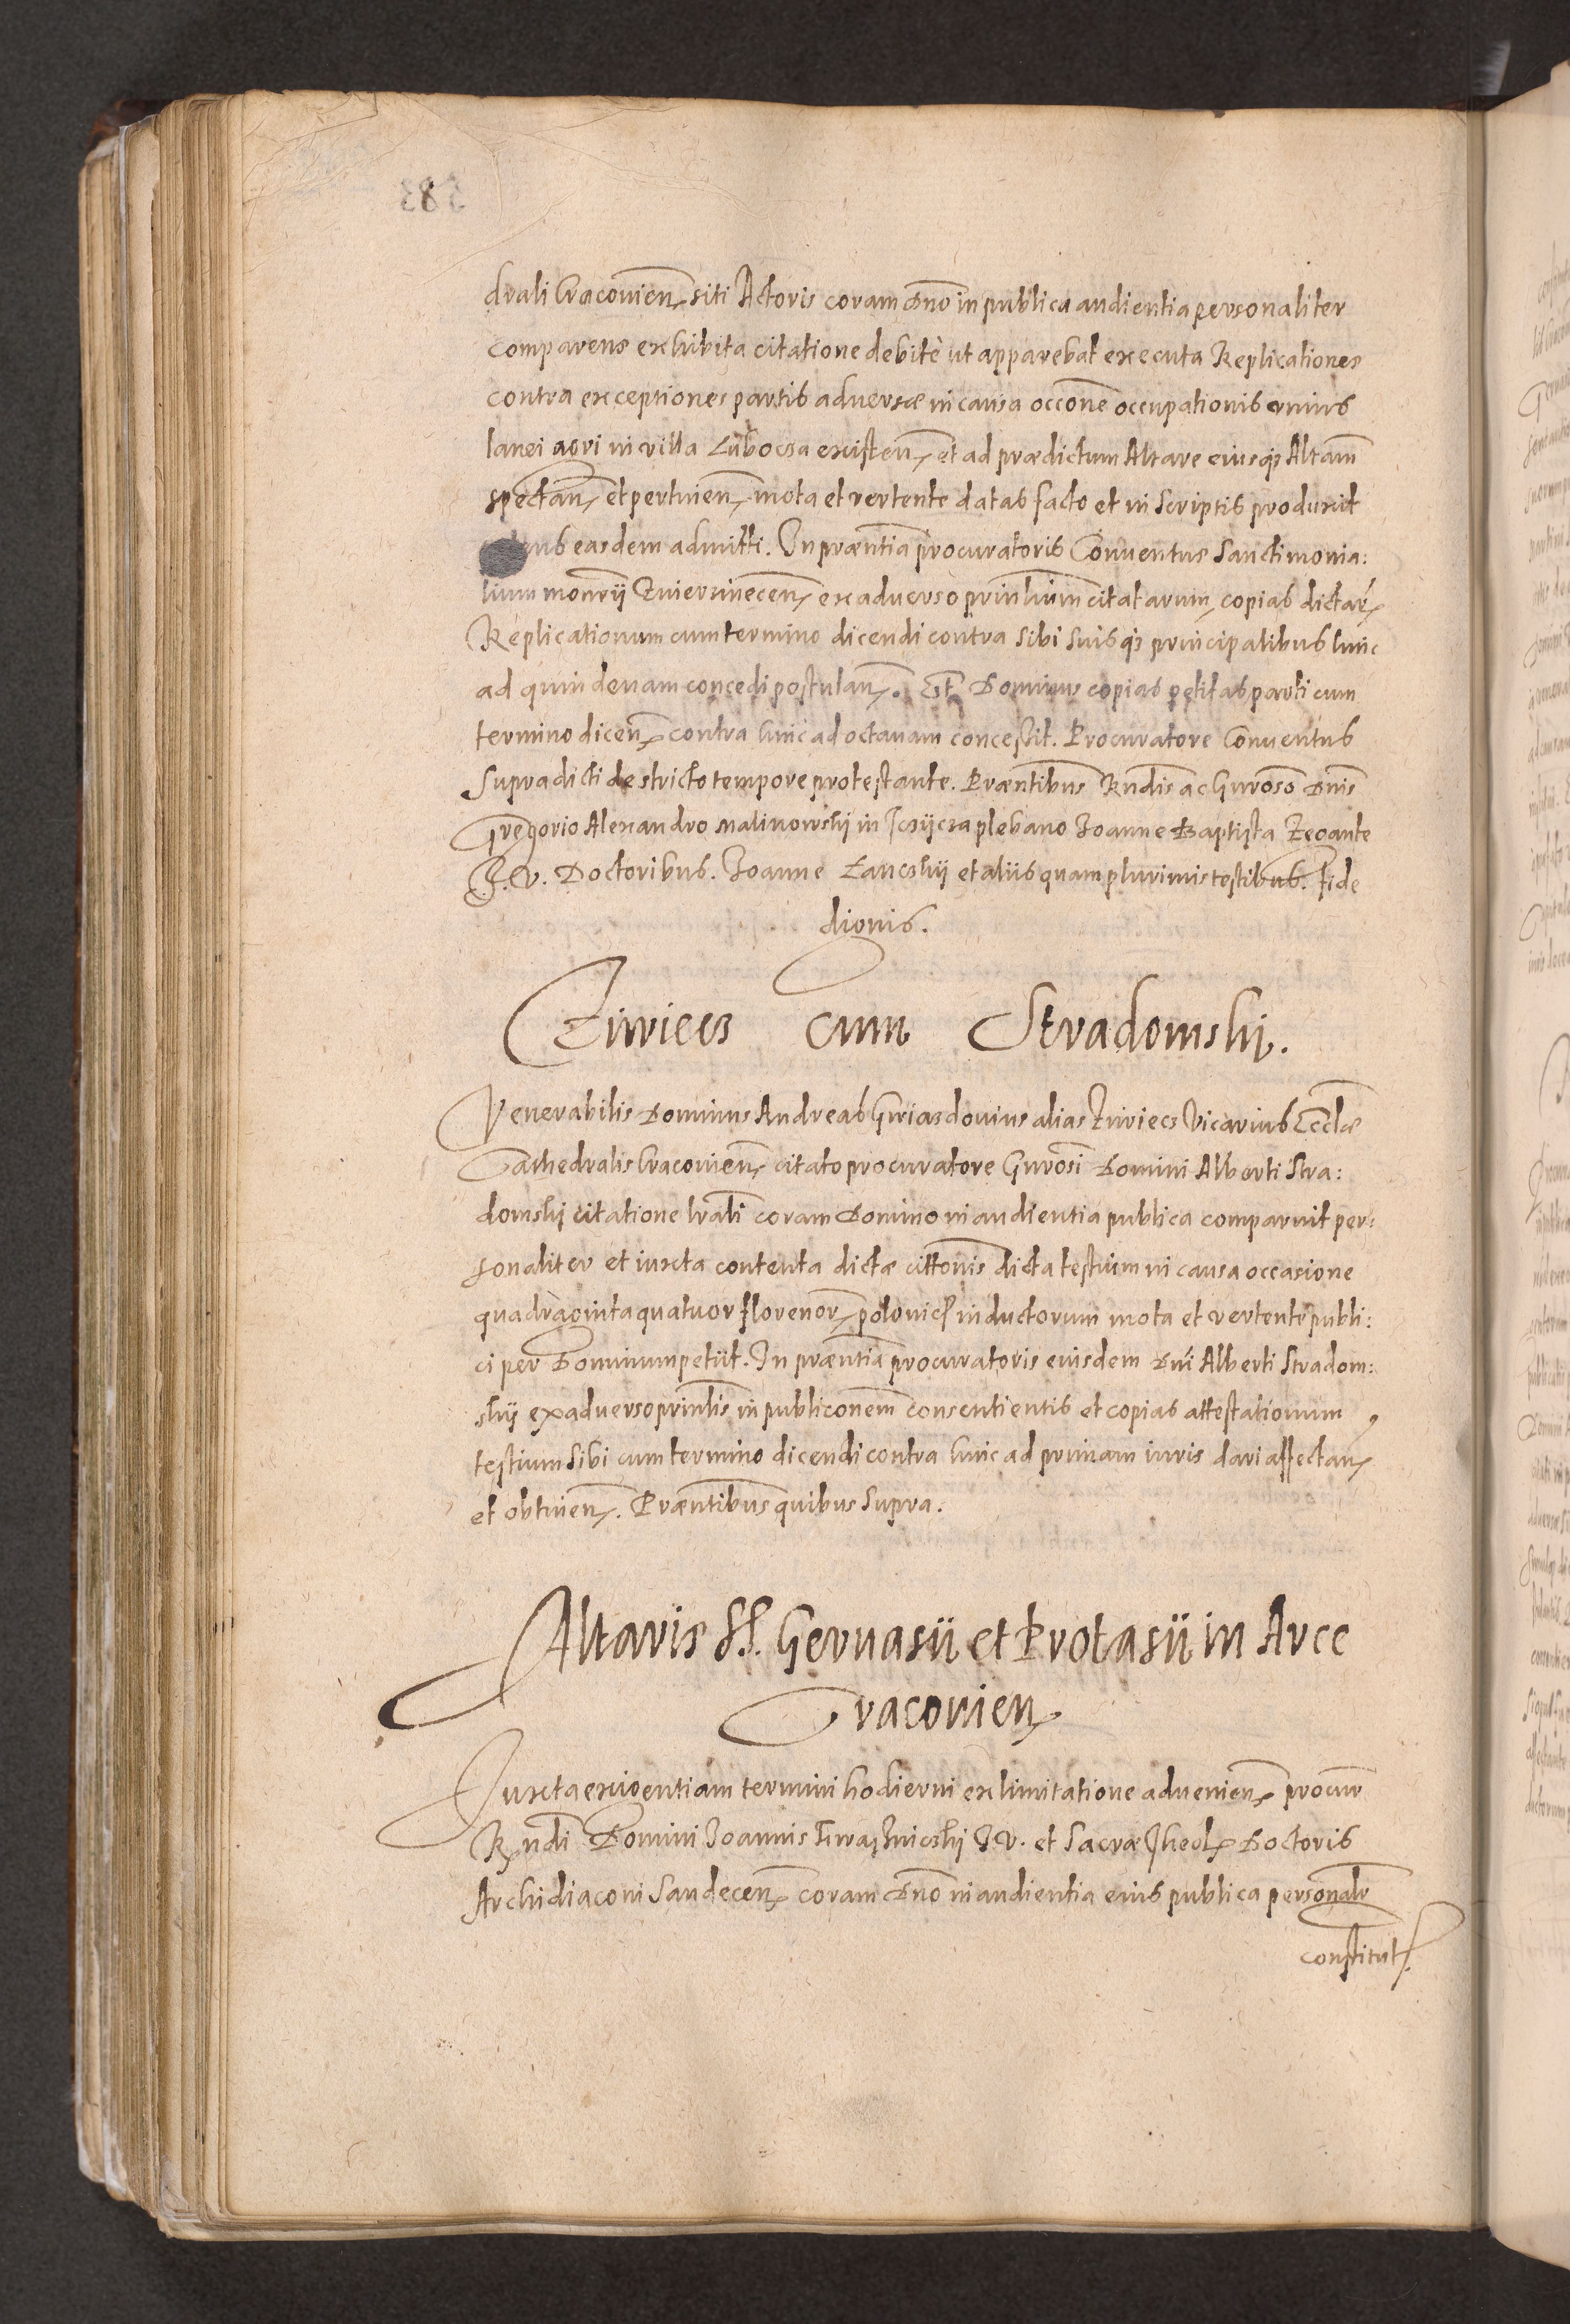 drali Cracovien. siti Actoris coram Dno in publica audientia personaliter
comparens exhibita citatione debitè ut apparebat executa Replicationes
contra exceptiones partis adversæ in causa occone occupationis unius
lanei agri in villa Lubocza existen. et ad prædictum Altare eiusq; Altam
spectan. et pertinen. mota et vertente datas facto et in scriptis produxit
easdem admitti. In præntia procuratoris Conventus Sanctimonia:
lium monrij Zwierzinecen. ex adverso prinlium citatarum, copias dictar.
Replicationum cum termino dicendi contra sibi suisq; principalibus hinc
ad quindenam concedi postulan. Et Dominus copias petitas parti cum
termino dicen. contra hinc ad octavam concessit. Procuratore Conventus
Supradicti de stricto tempore protestante. Præntibus Rndis ac Gnroso Dnis
Gregorio Alexandro Malinowski in plebano Joanne Baptista Zegante
J. V. Doctoribus. Joanne Lanczkij et aliis quam plurimis testibus. fide
dignis.
Ziwiecz cum Stradomski.
Venerabilis Dominus Andreas Gwiazdovius alias Zywiecz Vicarius Eccliæ
Cathedralis Cracovien. citato procuratore Gnrosi Domini Alberti Stra:
domski citatione lrali coram Domino in audientia publica comparuit per:
sonaliter et iuxta contenta dictæ cittonis dicta testium in causa occasione
quadraginta quatuor florenor. polonical inductorum mota et vertente publi:
ci per Dominum petiit. In præntia procuratoris eiusdem Dni Alberti Stradom:
skij ex adverso prinlis in publiconem consentientis et copias attestationum
testium sibi cum termino dicendi contra hinc ad primam iuris dari affectan.
et obtinen. Præntibus quibus supra.
Altaris SS. Gervasii et Protasii in Arce
Cracovien.
Juxta exigentiam termini hodierni ex limitatione advenien. procur
Rndi Domini Joannis J.V. et Sacræ Theol. Doctoris
Archidiaconi Sandecen. coram Dno in audientia eius publica personalr
constitut.